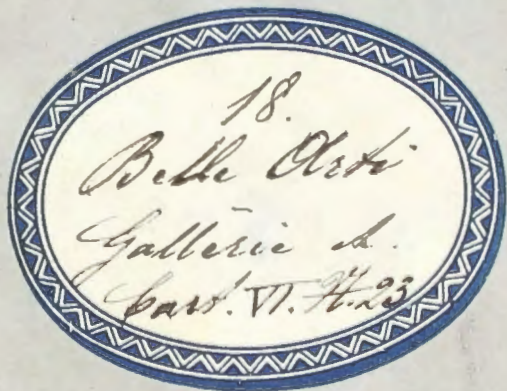 18.
Belle Arti
Gallerie A.
Cart. VI. H.23